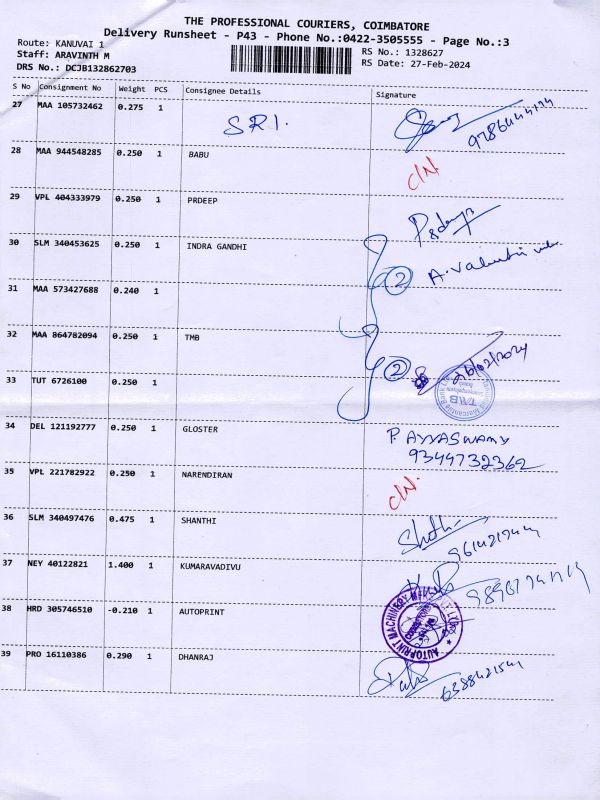 THE PROFESSIONAL COURIERS, COIMBATORE
Delivery Runsheet - P43 - Phone No.:0422-3505555 - Page No.:3
Route: KANUVAI 1
Staff: ARAVINTH M
DRS No.: DCJB132862703
RS No.: 1328627
RS Date: 27-Feb-2024
S No Consignment No Weight PCS Consignee Details Signature
27 MAA 105732462 0.275 1 SRI.
28 MAA 944548285 0.250 1 BABU C/N
29 VPL 404333979 0.250 1 PRDEEP
30 SLM 340453625 0.250 1 INDRA GANDHI 2
31 MAA 573427688 0.240 1
32 MAA 864782094 0.250 1 TMB 2
33 TUT 6726100 0.250 1 TMB
34 DEL 121192777 0.250 1 GLOSTER P. AYYASWAMY
9344732362
35 VPL 221782922 0.250 1 NARENDIRAN C/N.
36 SLM 340497476 0.475 1 SHANTHI
37 NEY 40122821 1.400 1 KUMARAVADIVU
38 HRD 305746510 -0.210 1 AUTOPRINT AUTOPRINT MACHINERY
39 PRO 16110386 0.290 1 DHANRAJ